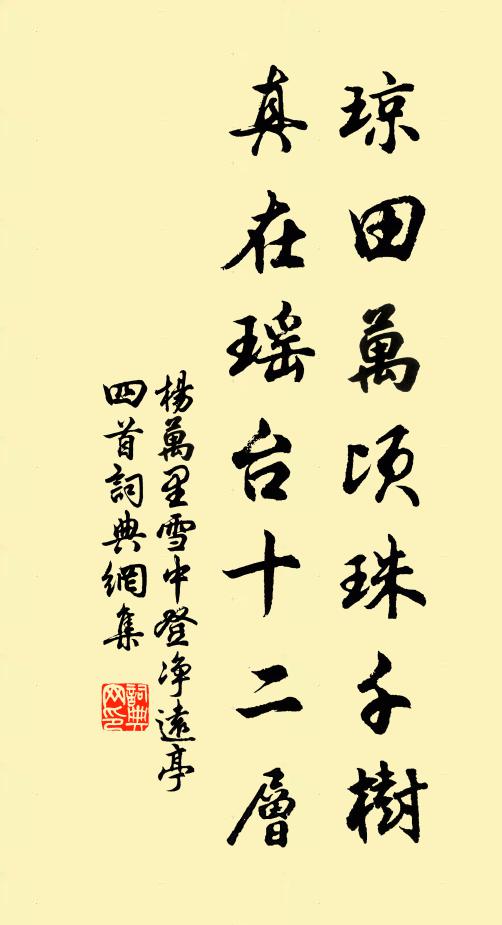 琼田萬顷珠千樹
真在瑶台十二層
楊萬里雪中登净遠亭
四首詞典網集
詞典
网印